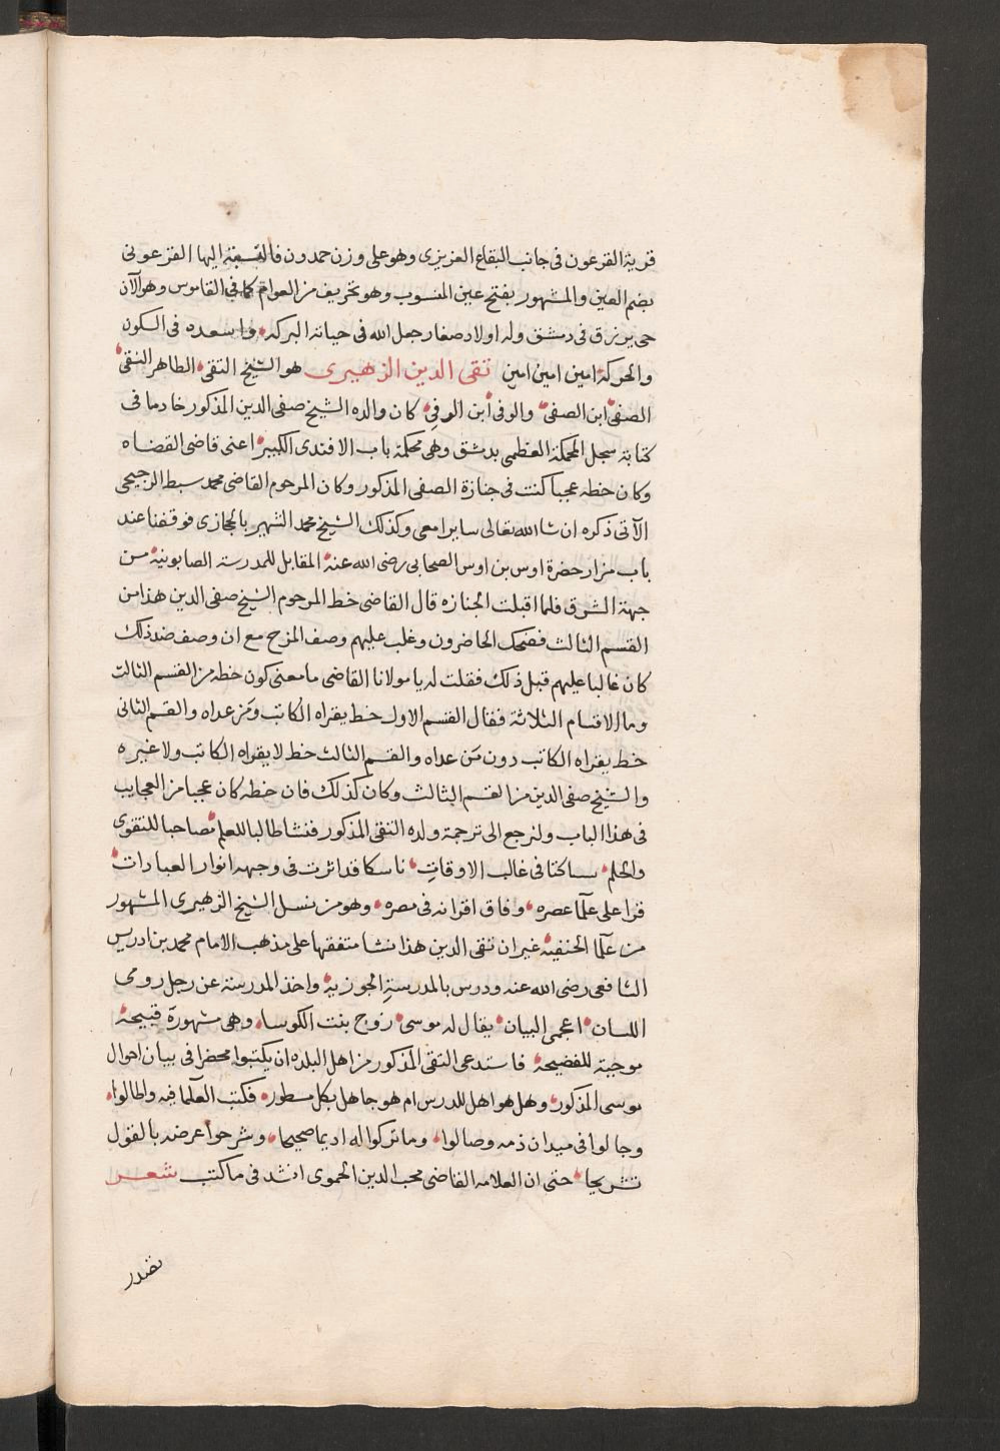 قرية الفرعون فى جانب البقاع العزيزى وهو على وزن حمدون فالنسبة اليها الفرعونى
بضم العين والمشهور بفتح عين المنسوب وهو تحريف من العوام كما فى القاموس وهو الآن
حى يرزق فى دمشق وله اولاد صغار جعل الله فى حياته البركه واسعده فى السكون
والحركة امين امين امين تقى الدين الزهيرى هو الشيخ التقى الطاهر النقى
الصفى ابن الصفى والوفى ابن الوفى كان والده الشيخ صفى الدين المذكور خادما فى
كتابة سجل المحكمة العظمى بدمشق وهى محكمة باب الافندى الكبير اعنى قاضى القضاه
وكان خطه عجبا كنت فى جنازة الصفى المذكور وكان المرحوم القاضى محمد سبط الرجيحى
الآتى ذكره ان شا الله تعالى سايرا معى وكذلك الشيخ محمد الشهير بالحجازى فوقفنا عند
باب مزار حضرة اوس بن اوس الصحابى رضى الله عنه المقابل للمدرسة الصابونية من
جهة الشرق فلما اقبلت الجنازه قال القاضى خط المرحوم الشيخ صفى الدين هذا من
القسم الثالث فضحك الحاضرون وغلب عليهم وصف المزح مع ان وصف ضد ذلك
كان غالبا عليهم قبل ذلك فقلت له يا مولانا القاضى ما معنى كون خطه من القسم الثالث
وما الاقسام الثلاثة فقال القسم الاول خط يقراه الكاتب ومن عداه والقسم الثانى
خط يقراه الكاتب دون من عداه والقسم الثالث خط لا يقراه الكاتب ولا غيره
والشيخ صفى الدين من القسم الثالث وكان كذلك فان خطه كان عجبا من العجايب
فى هذا الباب ولنرجع الى ترجمة ولده التقى المذكور فنشا طالبا للعلم مصاحبا للتقوى
والحلم ساكتا فى غالب الاوقات ناسكا قد اثرت فى وجهه انوار العبادات
قرا على علما عصره وفاق اقرانه فى مصره وهو من نسل الشيخ الزهيرى المشهور
من علما الحنفية غير ان تقى الدين هذا نشا متفقها على مذهب الامام محمد بن ادريس
الشافعى رضى الله عنه ودرس بالمدرسة الجوزية واخذ المدرسة عن رجل رومى
اللسان اعجمى البيان يقال له موسى زوج بنت الكوسا وهى شهورة قبيحة
موجبة للفضيحة فاستدعى التقى المذكور من اهل البلده ان يكتبوا محضرا فى بيان احوال
موسى المذكور وهل هو اهل للدرس ام هو جاهل بكل مسطور فكتب العلما فيه واطالوا
وجالوا فى ميدان ذمه وصالوا وما تركوا له اديما صحيحا وشرحوا عرضه بالقول
تشريحا حتى ان العلامه القاضى محب الدين الحموى انشد فى ما كتب شعر
تصدر